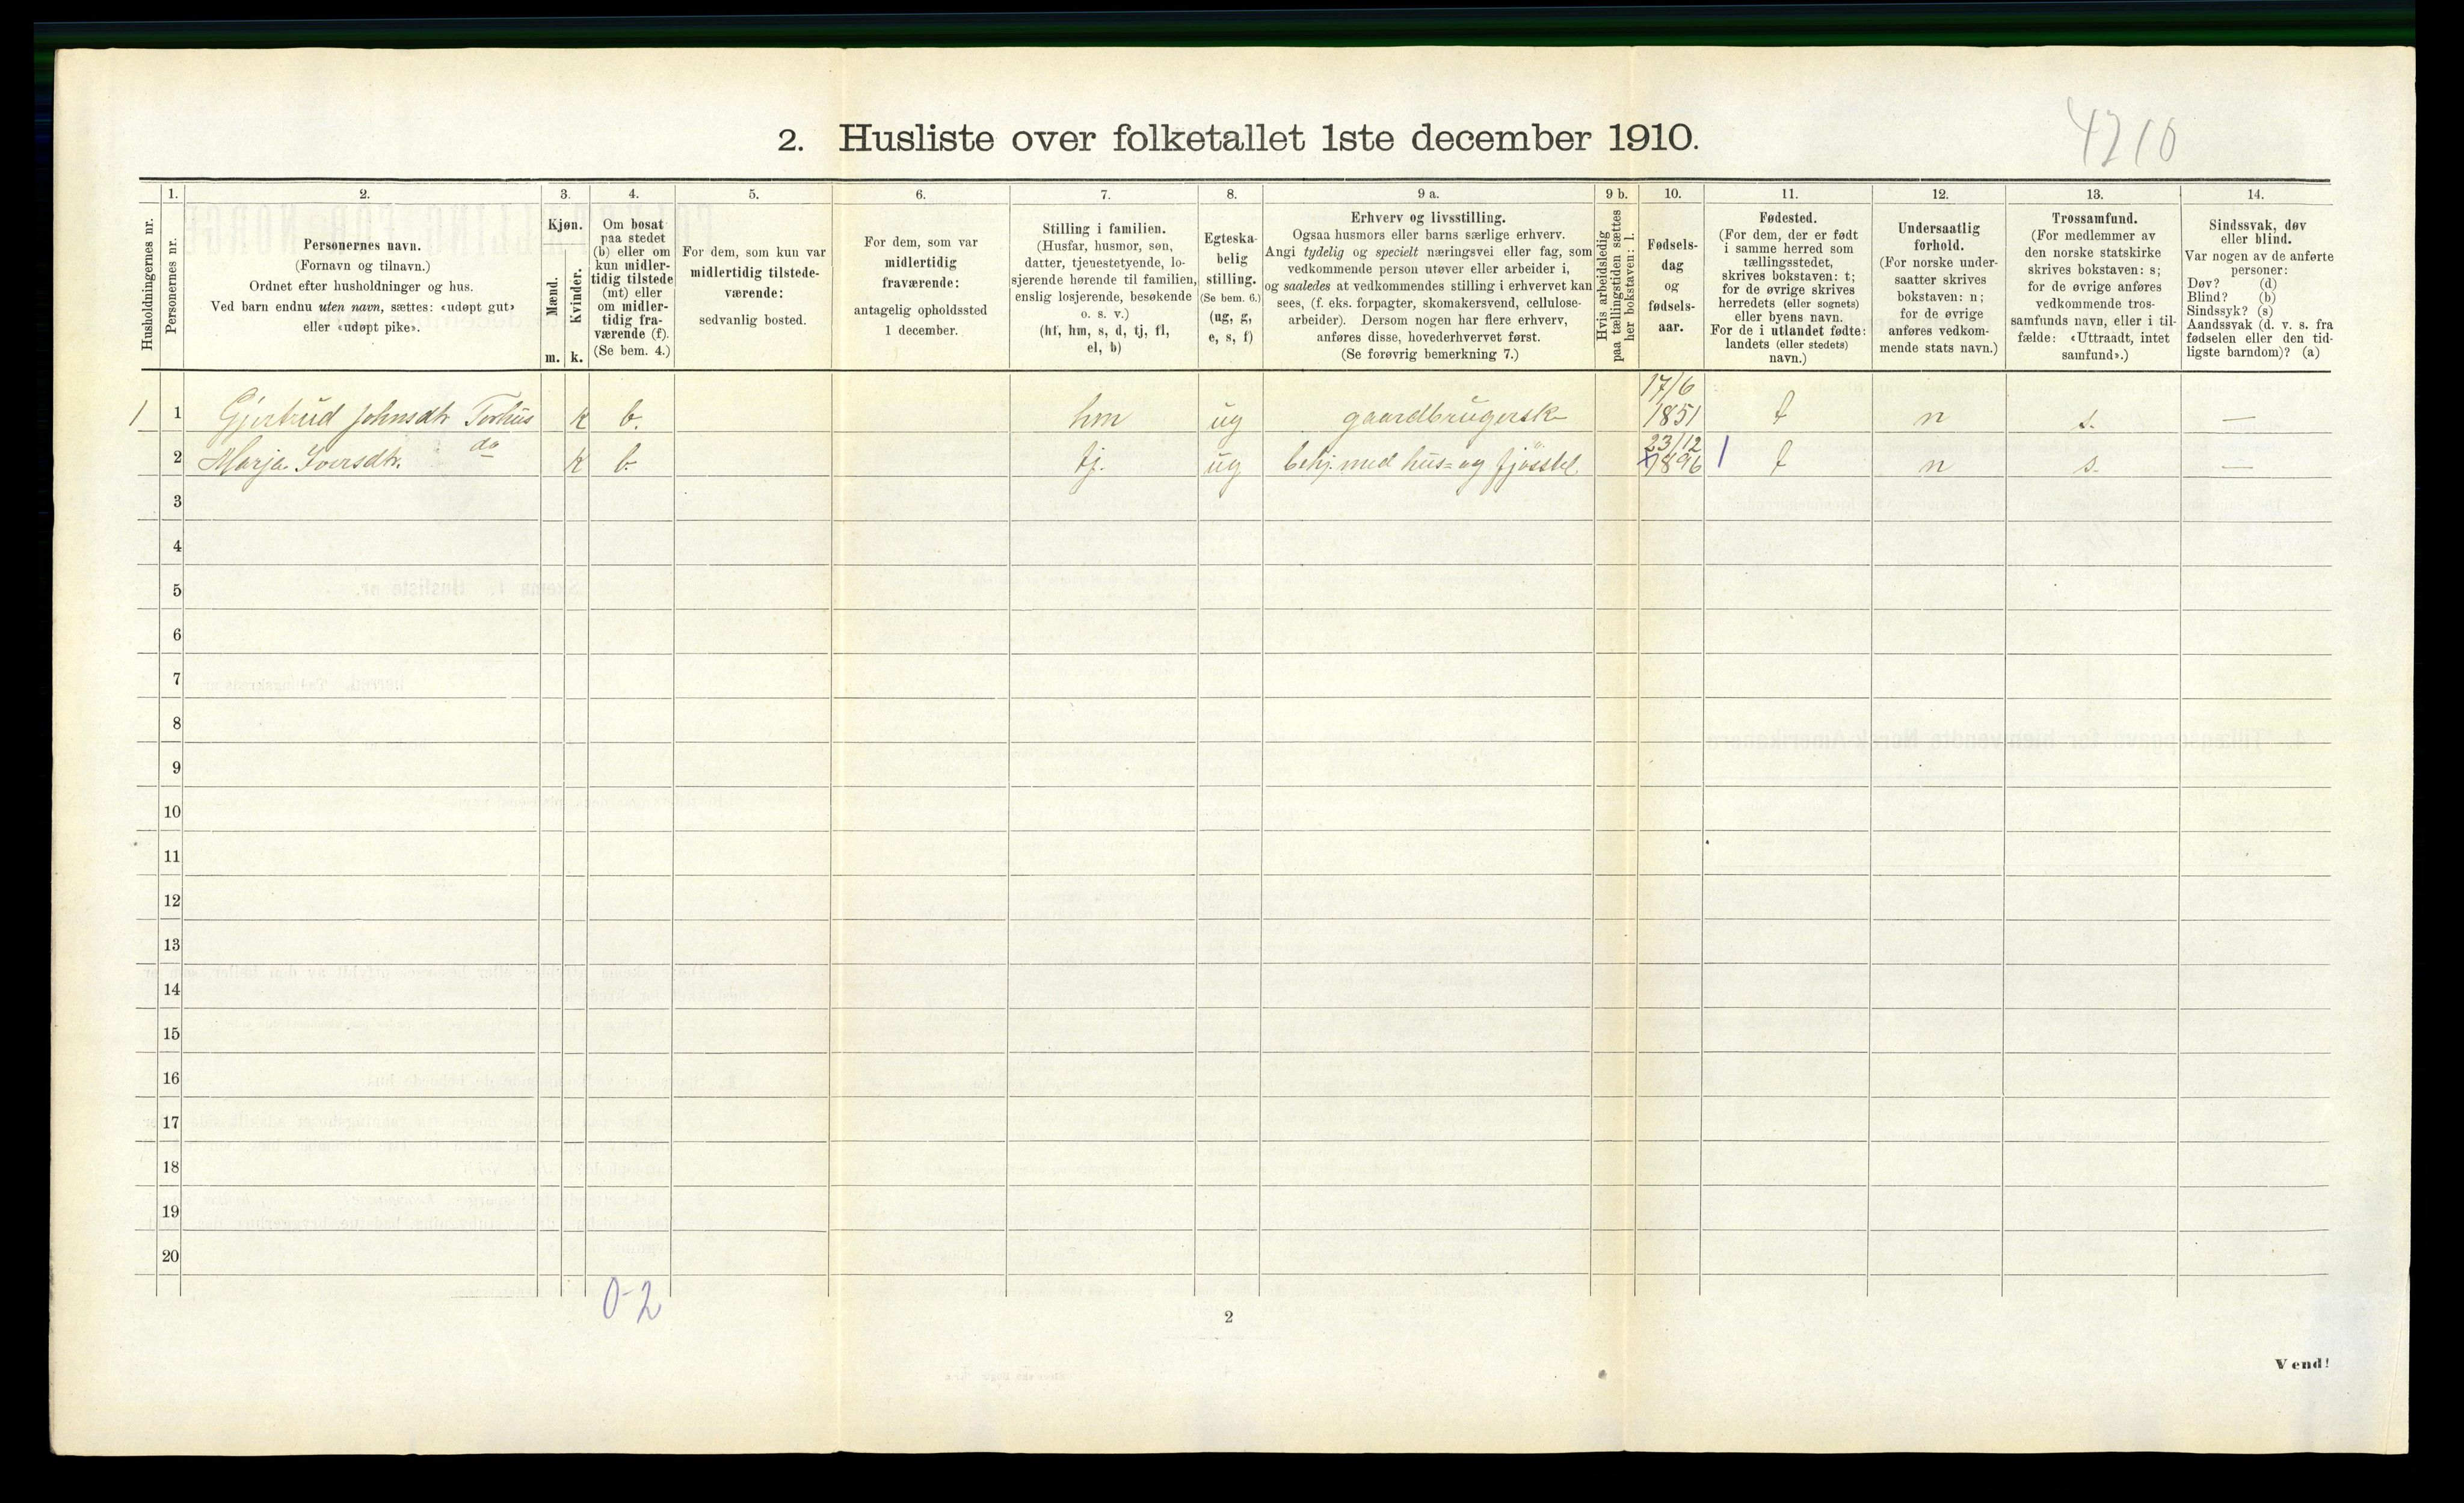 2. Husliste over folketallet 1ste december 1910.
4210
1. 2. 3. 4. 5. 6. 7. 8. 9 a. 9 b. 10. 11. 12. 13. 14.
Husholdningernes nr.
Personernes nr.
Personernes navn.
(Fornavn og tilnavn.)
Ordnet efter husholdninger og hus.
Ved barn endnu uten navn, sættes: «udøpt gut»
eller «udøpt pike».
Kjøn.
Mænd.
Kvinder.
m. k.
Om bosat
paa stedet
(b) eller om
kun midler-
tidig tilstede
(mt) eller
om midler-
tidig fra-
værende (f).
(Se bem. 4.)
For dem, som kun var
midlertidig tilstede-
værende:
sedvanlig bosted.
For dem, som var
midlertidig
fraværende:
antagelig opholdssted
1 december.
Stilling i familien.
(Husfar, husmor, søn,
datter, tjenestetyende, lo-
sjerende hørende til familien,
enslig losjerende, besøkende
o. s. v.)
(hf, hm, s, d, tj, fl,
el, b)
Egteska-
belig
stilling.
(Se bem. 6.)
(ug, g,
e, s, f)
Erhverv og livsstilling.
Ogsaa husmors eller barns særlige erhverv.
Angi tydelig og specielt næringsvei eller fag, som
vedkommende person utøver eller arbeider i,
og saaledes at vedkommendes stilling i erhvervet kan
sees, (f. eks. forpagter, skomakersvend, cellulose-
arbeider). Dersom nogen har flere erhverv,
anføres disse, hovederhvervet først.
(Se forøvrig bemerkning 7.)
Hvis arbeidsledig
paa tællingstiden sættes
her bokstaven: l.
Fødsels-
dag
og
fødsels-
aar.
Fødested.
(For dem, der er født
i samme herred som
tællingsstedet,
skrives bokstaven: t;
for de øvrige skrives
herredets (eller sognets)
eller byens navn.
For de i utlandet fødte:
landets (eller stedets)
navn.)
Undersaatlig
forhold.
(For norske under-
saatter skrives
bokstaven: n;
for de øvrige
anføres vedkom-
mende stats navn.)
Trossamfund.
(For medlemmer av
den norske statskirke
skrives bokstaven: s;
for de øvrige anføres
vedkommende tros-
samfunds navn, eller i til-
fælde: «Uttraadt, intet
samfund».)
Sindssvak, døv
eller blind.
Var nogen av de anførte
personer:
Døv? (d)
Blind? (b)
Sindssyk? (s)
Aandssvak (d. v. s. fra
fødselen eller den tid-
ligste barndom)? (a)
1 1 Gjertrud Johnsdtr Torhus k b. hm ug gaardbrugersk 17/6 1851 t n s. —
2 Marja Iversdtr. do k b. tj. ug behj. med hus= og fjösstel. 23/12 1896 1 t n s. —
3
4
5
6
7
8
9
10
11
12
13
14
15
16
17
18
19
20
0-2
2
Vend!